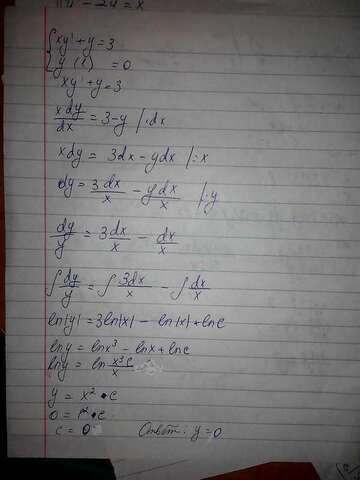 { xy' + y = 3
y (1) = 0
xy' + y = 3
xdy/dx = 3-y |·dx
xdy = 3dx - ydx |:x
dy = 3dx/x - ydx/x |:y
dy/y = 3dx/x - dx/x
∫dy/y = ∫3dx/x - ∫dx/x
ln|y| = 3ln|x| - ln|x| + lnc
lny = lnx³ - lnx + lnc
lny = ln x³c/x
y = x² • c
0 = 1² • c
c = 0 Ответ: y = 0